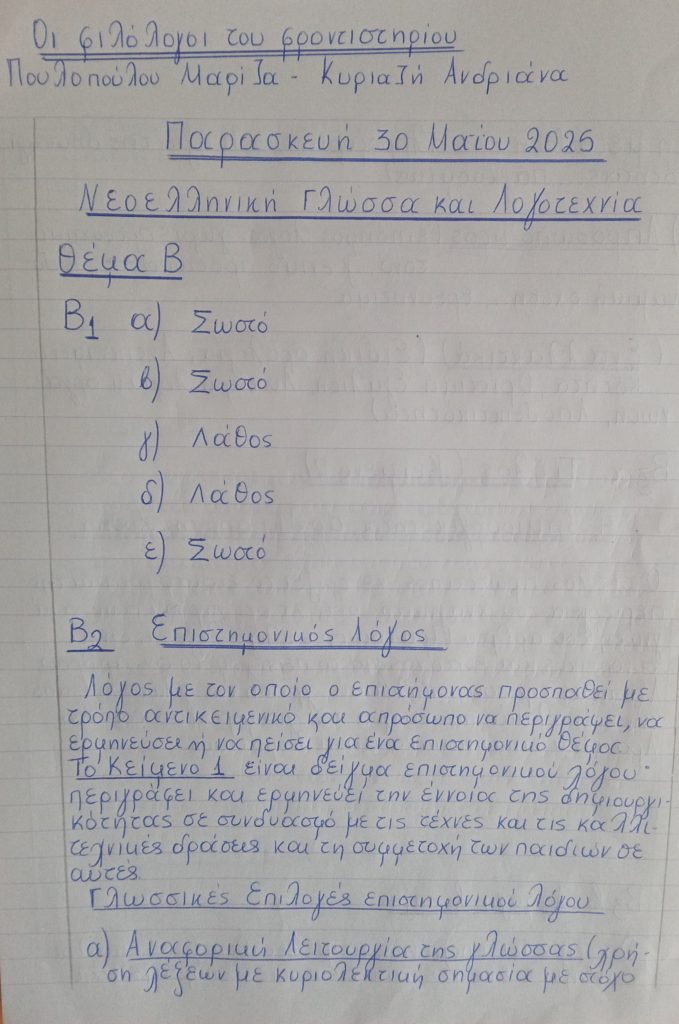 Οι φιλόλογοι του φροντιστηρίου
Πουλοπούλου Μαρίζα - Κυριαζή Ανδριάνα
Παρασκευή 30 Μαΐου 2025
Νεοελληνική Γλώσσα και Λογοτεχνία
Θέμα Β
Β1 α) Σωστό
β) Σωστό
γ) Λάθος
δ) Λάθος
ε) Σωστό
Β2 Επιστημονικός λόγος
Λόγος με τον οποίο ο επιστήμονας προσπαθεί με
τρόπο αντικειμενικό και απρόσωπο να περιγράψει, να
ερμηνεύσει ή να πείσει για ένα επιστημονικό θέμα.
Το Κείμενο 1 είναι δείγμα επιστημονικού λόγου·
περιγράφει και ερμηνεύει την έννοια της δημιουργι-
κότητας σε συνδυασμό με τις τέχνες και τις καλλι-
τεχνικές δράσεις και τη συμμετοχή των παιδιών σε
αυτές.
Γλωσσικές Επιλογές επιστημονικού λόγου
α) Αναφορική Λειτουργία της γλώσσας (χρή-
ση λέξεων με κυριολεκτική σημασία με στόχο